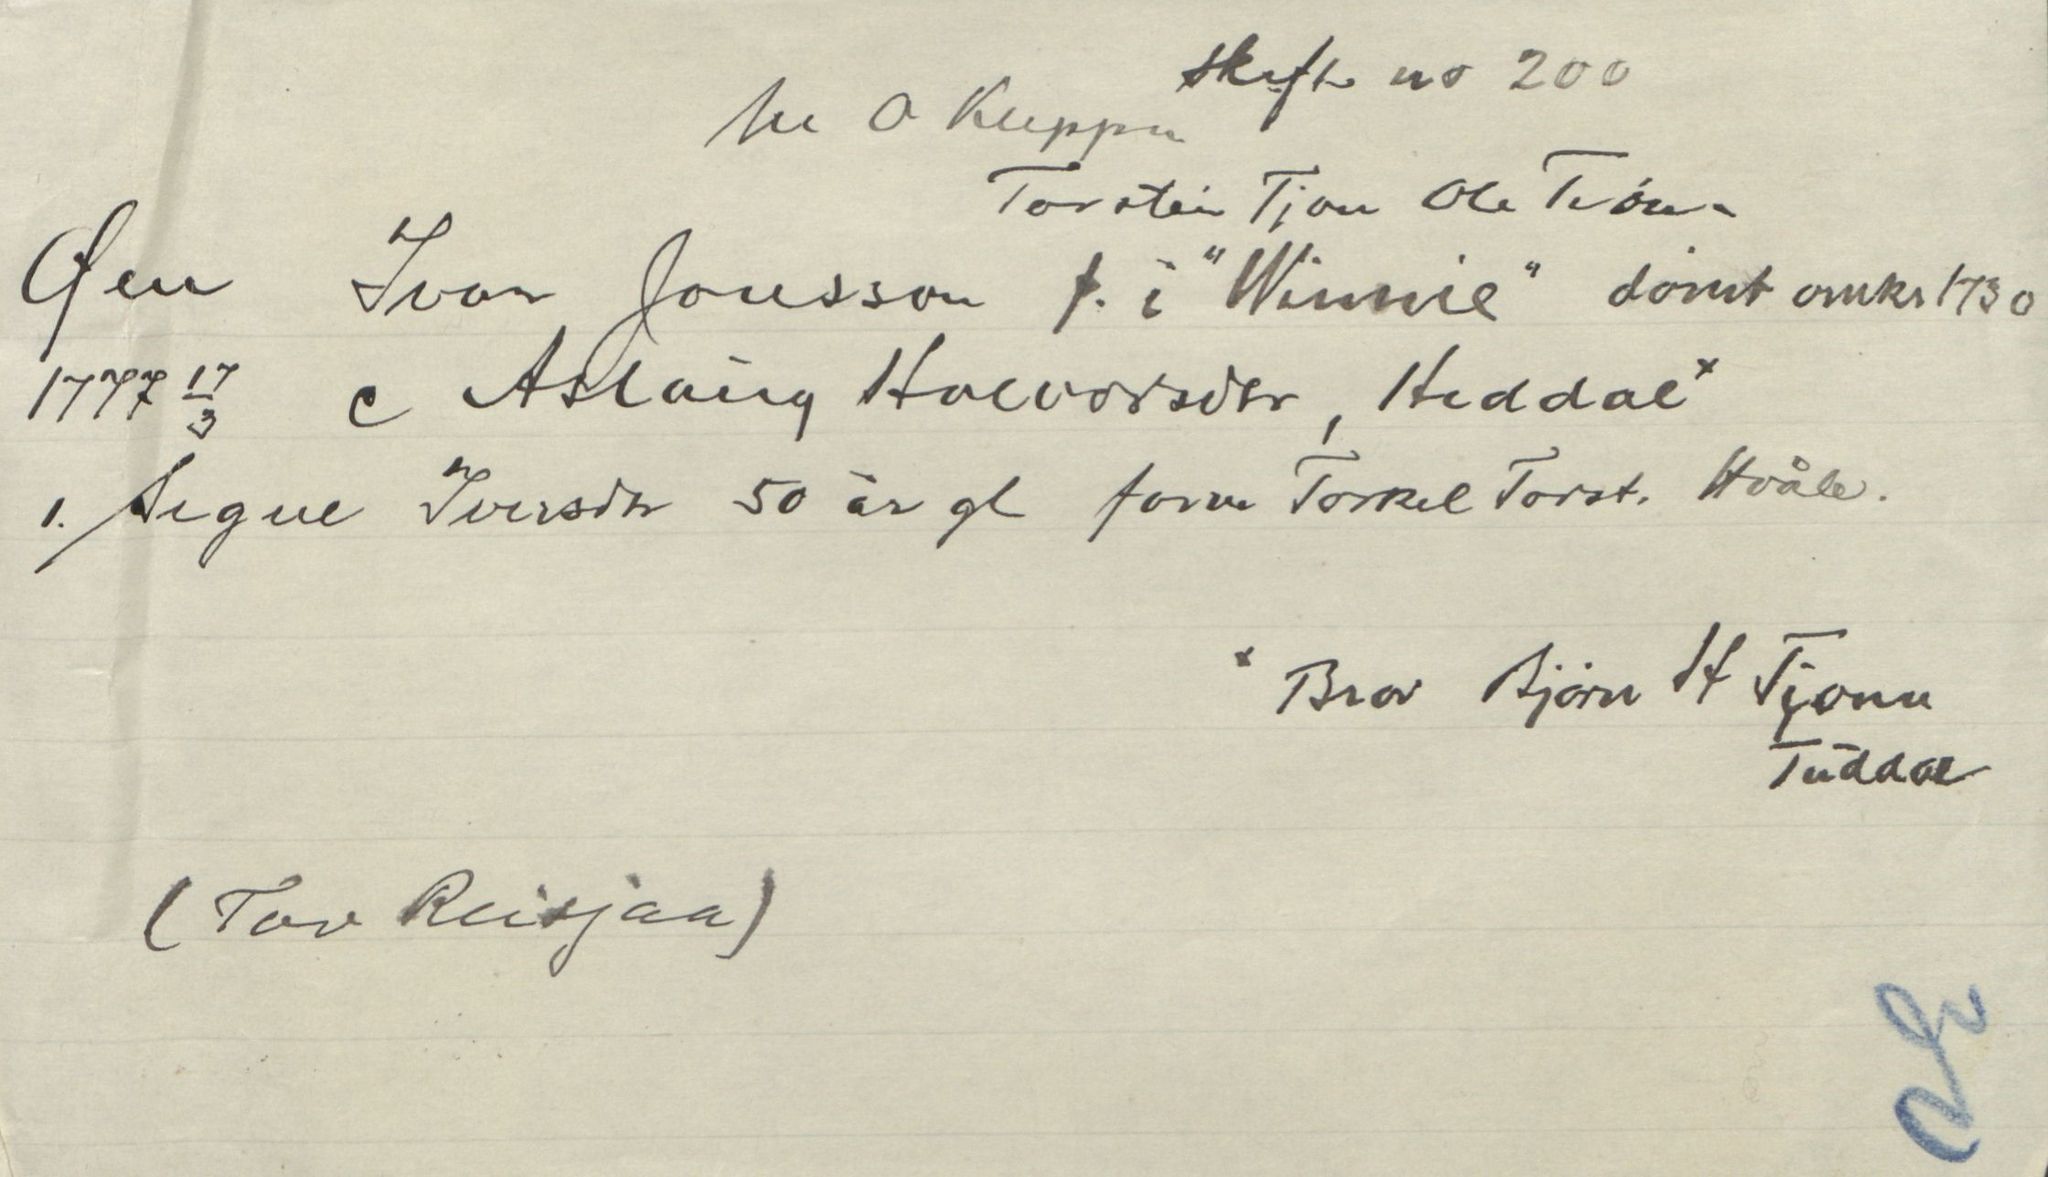 skifte no 200
O Kleppen
Torstein Tjon Ole Tjön
Øen Ivar Jonsson f. i "Winnie" dömt omkr 1730
1777 17/3 c Aslaug Halvorsdtr, Heddal x
1. Signe Iversdtr 50 år gl form Torkel Torst. Hvåle.
x Bror Björn H Tjonn
Tuddal
(Tov Reisjaa)